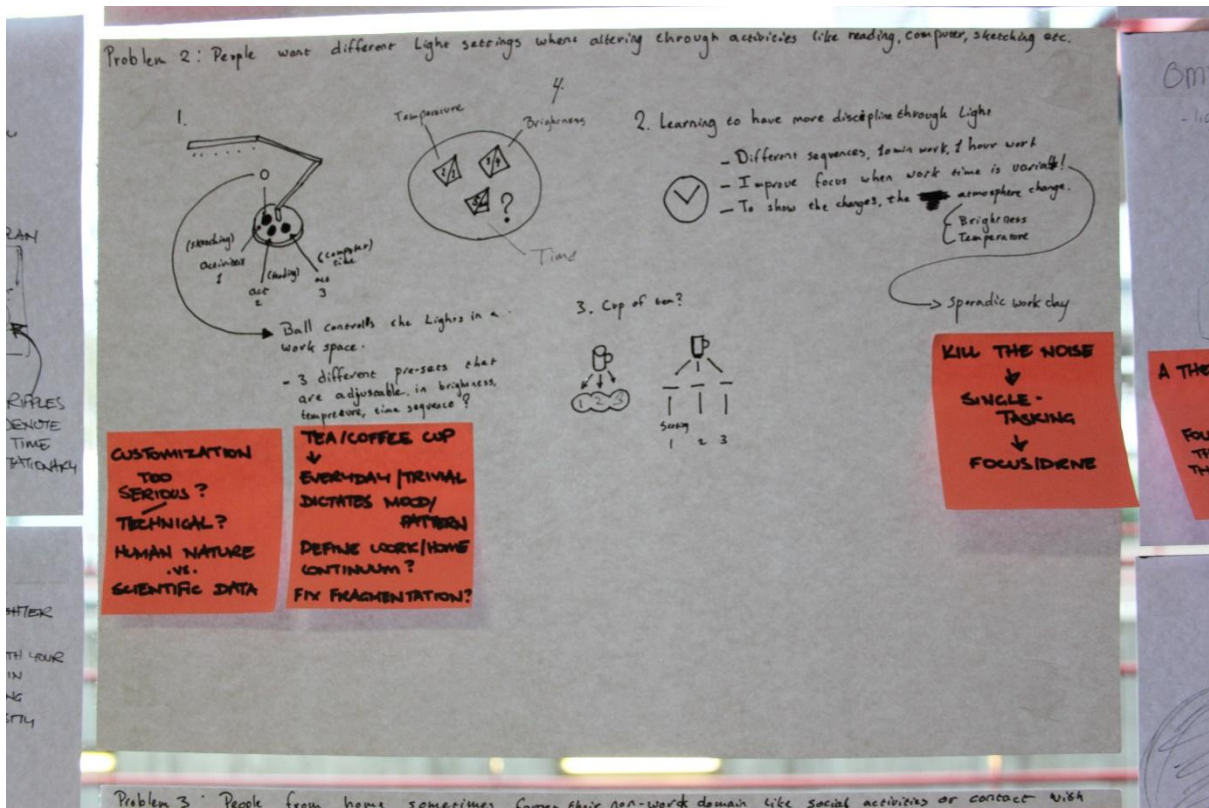 Problem 2: People want different Light settings when altering through activities like reading, computer, sketching etc.
1.
(sketching)
activities
1
(reading)
act
2
(computer)
act
3
Ball controlls the Lights in a
work space.
- 3 different pre-sets that
are adjustable, in brighness,
tempreture, time sequence?
4.
Temperature
Brighness
?
Time
2. Learning to have more discipline through Light
- Different sequences, 10 min work, 1 hour work
- Improve focus when work time is
- To show the changes, the atmosphere change.
Brighness
Temperature
sporadic work day
3. Cup of tea?
1 2 3
Setting
1 2 3
CUSTOMIZATION
TOO
SERIOUS?
TECHNICAL?
HUMAN NATURE
.VS.
SCIENTIFIC DATA
TEA/COFFEE CUP
EVERYDAY/TRIVIAL
DICTATES MOOD/
PATTERN
DEFINE WORK/HOME
CONTINUUM?
FIX FRAGMENTATION?
KILL THE NOISE
SINGLE-
TASKING
FOCUS/DRNE
RIPPLES
DENOTE
TIME
A THE
Problem 3: People from home sometimes their non-work domain like social activities or contact with